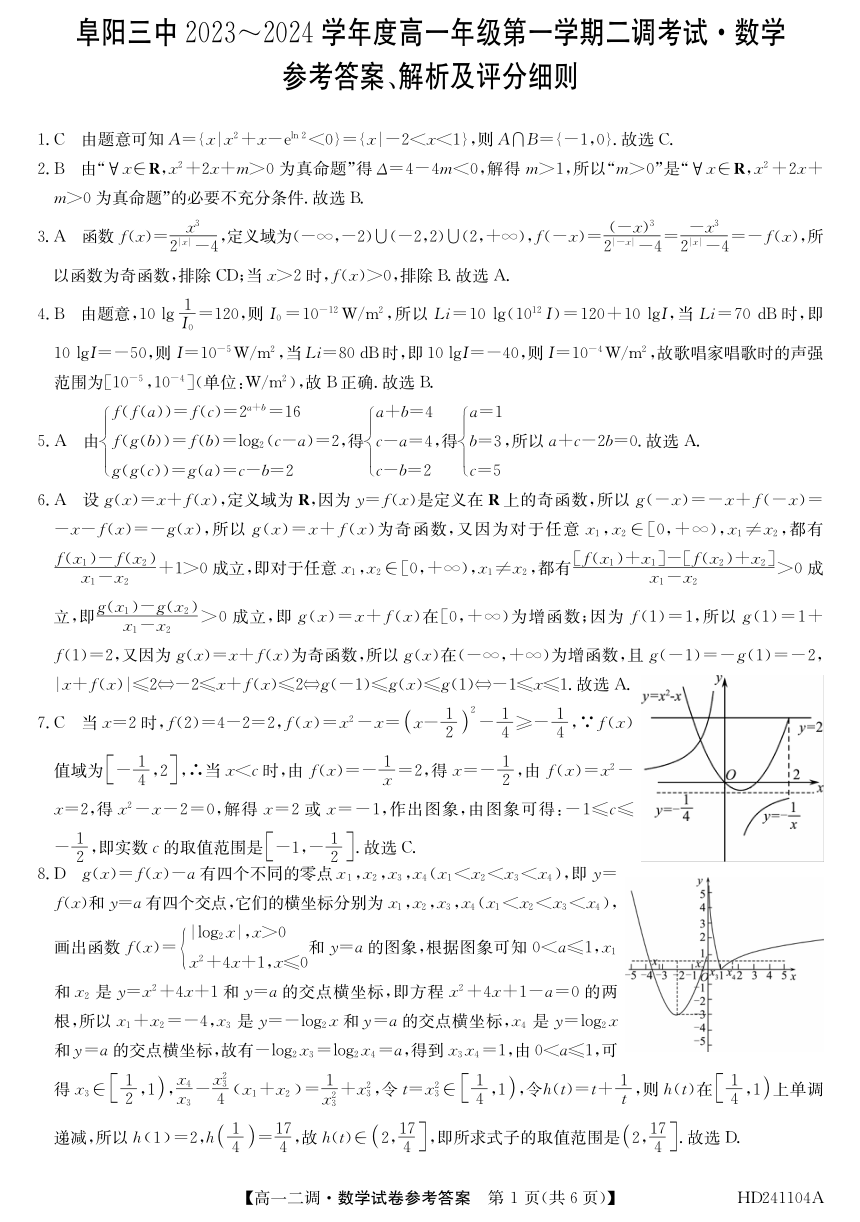 阜阳三中 2023～2024 学年度高一年级第一学期二调考试·数学
参考答案、解析及评分细则
1. C　由题意可知 A={x|x²+x-e^{ln 2}<0}={x|-2<x<1},则 A∩B={-1,0}. 故选 C.
2. B　由“∀x∈R,x²+2x+m>0 为真命题”得 Δ=4-4m<0,解得 m>1,所以“m>0”是“∀x∈R,x²+2x+
m>0 为真命题”的必要不充分条件. 故选 B.
3. A　函数 f(x)=x³/(2^{|x|}-4),定义域为(-∞,-2)∪(-2,2)∪(2,+∞),f(-x)=(-x)³/(2^{|-x|}-4)=-x³/(2^{|x|}-4)=-f(x),所
以函数为奇函数,排除 CD;当 x>2 时,f(x)>0,排除 B. 故选 A.
4. B　由题意,10 lg 1/I₀=120,则 I₀=10⁻¹² W/m²,所以 Li=10 lg(10¹² I)=120+10 lgI,当 Li=70 dB 时,即
10 lgI=-50,则 I=10⁻⁵ W/m²,当 Li=80 dB 时,即 10 lgI=-40,则 I=10⁻⁴ W/m²,故歌唱家唱歌时的声强
范围为[10⁻⁵,10⁻⁴](单位:W/m²),故 B 正确. 故选 B.
5. A　由{f(f(a))=f(c)=2^{a+b}=16 f(g(b))=f(b)=log₂(c-a)=2 g(g(c))=g(a)=c-b=2,得{a+b=4 c-a=4 c-b=2,得{a=1 b=3 c=5,所以 a+c-2b=0. 故选 A.
6. A　设 g(x)=x+f(x),定义域为 R,因为 y=f(x)是定义在 R 上的奇函数,所以 g(-x)=-x+f(-x)=
-x-f(x)=-g(x),所以 g(x)=x+f(x)为奇函数,又因为对于任意 x₁,x₂∈[0,+∞),x₁≠x₂,都有
(f(x₁)-f(x₂))/(x₁-x₂)+1>0 成立,即对于任意 x₁,x₂∈[0,+∞),x₁≠x₂,都有([f(x₁)+x₁]-[f(x₂)+x₂])/(x₁-x₂)>0 成
立,即(g(x₁)-g(x₂))/(x₁-x₂)>0 成立,即 g(x)=x+f(x)在[0,+∞)为增函数;因为 f(1)=1,所以 g(1)=1+
f(1)=2,又因为 g(x)=x+f(x)为奇函数,所以 g(x)在(-∞,+∞)为增函数,且 g(-1)=-g(1)=-2,
|x+f(x)|≤2⇔-2≤x+f(x)≤2⇔g(-1)≤g(x)≤g(1)⇔-1≤x≤1. 故选 A.
7. C　当 x=2 时,f(2)=4-2=2,f(x)=x²-x=(x-1/2)²-1/4≥-1/4,∵f(x)
值域为[-1/4,2],∴当 x<c 时,由 f(x)=-1/x=2,得 x=-1/2,由 f(x)=x²-
x=2,得 x²-x-2=0,解得 x=2 或 x=-1,作出图象,由图象可得:-1≤c≤
-1/2,即实数 c 的取值范围是[-1,-1/2]. 故选 C.
y
y=x²-x
y=2
O
2
x
y=-1/4
y=-1/x
8. D　g(x)=f(x)-a 有四个不同的零点 x₁,x₂,x₃,x₄(x₁<x₂<x₃<x₄),即 y=
f(x)和 y=a 有四个交点,它们的横坐标分别为 x₁,x₂,x₃,x₄(x₁<x₂<x₃<x₄),
画出函数 f(x)={|log₂x|,x>0 x²+4x+1,x≤0 和 y=a 的图象,根据图象可知 0<a≤1,x₁
和 x₂ 是 y=x²+4x+1 和 y=a 的交点横坐标,即方程 x²+4x+1-a=0 的两
根,所以 x₁+x₂=-4,x₃ 是 y=-log₂x 和 y=a 的交点横坐标,x₄ 是 y=log₂x
和 y=a 的交点横坐标,故有-log₂x₃=log₂x₄=a,得到 x₃x₄=1,由 0<a≤1,可
得 x₃∈[1/2,1),x₄/x₃-x₃²/4(x₁+x₂)=1/x₃²+x₃²,令 t=x₃²∈[1/4,1),令h(t)=t+1/t,则 h(t)在[1/4,1)上单调
递减,所以 h(1)=2,h(1/4)=17/4,故 h(t)∈(2,17/4],即所求式子的取值范围是(2,17/4]. 故选 D.
y
5
4
3
2
1
-5 -4 -3 -2 -1 O 1 2 3 4 5 x
-1
-2
-3
-4
-5
【高一二调·数学试卷参考答案　第 1 页(共 6 页)】
HD241104A